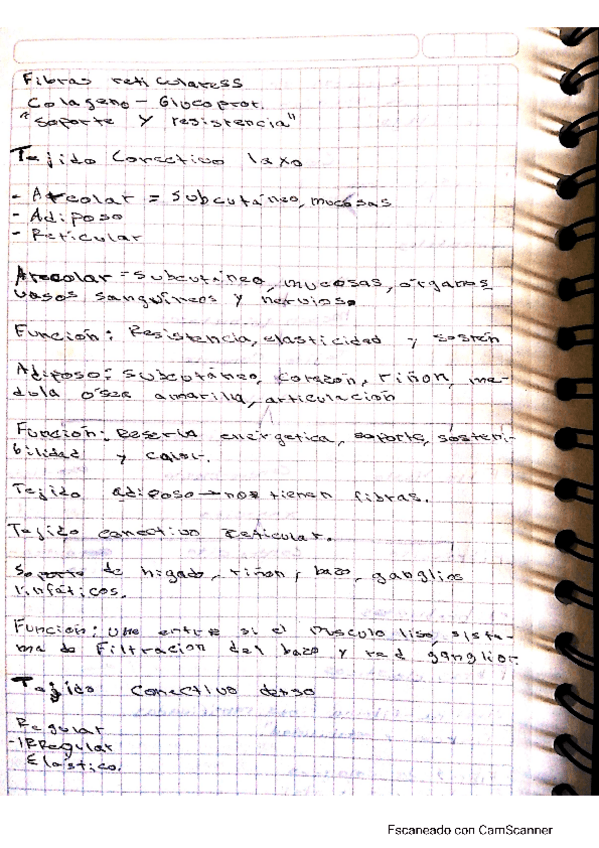 Fibras reticularess
Colageno - Glucoprot.
"soporte y resistencia"
Tejido Conectivo laxo
- Areolar = subcutáneo, mucosas
- Adiposo
- Reticular
Areolar = subcutáneo, mucosas, órganos
vasos sanguíneos y nervioso
Función: Resistencia, elasticidad y sostén
Adiposo: subcutáneo, corazón, riñon, me-
dula ósea amarilla, articulación
Función: Reserva energetica, soporte, sosteni-
bilidad y calor.
Tejido adiposo → no tienen fibras.
Tejido conectivo reticular.
Soporte de higado, riñon, bazo, ganglios
linfáticos.
Función: une entre si el musculo liso, siste-
ma de filtracion del bazo y red ganglior
Tejido conectivo denso
Regular
- IRRegular
Elástico.
Escaneado con CamScanner